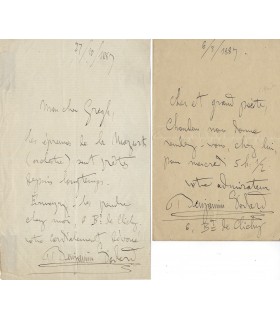 27/10/1887
Mon cher Gregh,
Les épreuves de le Mozart
(             ) sont prêtes
depuis longtemps.
Envoyez les prendre
chez moi 6 Bd de Clichy
votre cordialement dévoué
Benjamin Godard
1887.
Cher et grand poète
Choudens nous donne
rendez-vous chez lui
pour mercredi 5h 1/2
votre admirateur
Benjamin Godard
6. Bd de Clichy